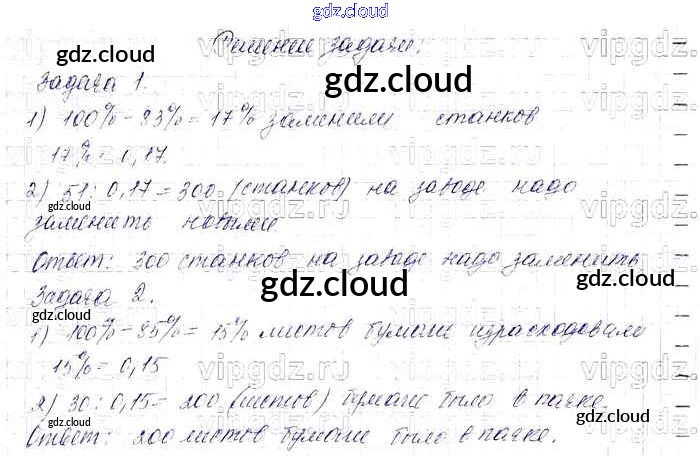 gdz.cloud
Решение задачи:
gdz.cloud
gdz.cloud
Задача 1.
1) 100% - 83% = 17% заменили станков
17% = 0,17.
gdz.cloud
gdz.cloud
2) 51 : 0,17 = 300 (станков) на заводе надо
заменить новыми
gdz.cloud
Ответ: 300 станков на заводе надо заменить
gdz.cloud
gdz.cloud
Задача 2.
1) 100% - 85% = 15% листов бумаги израсходовали
15% = 0,15
gdz.cloud
2) 30 : 0,15 = 200 (листов) бумаги было в пачке.
gdz.cloud
Ответ: 200 листов бумаги было в пачке.
gdz.cloud
vipgdz.ru
vipgdz.ru
vipgdz.ru
vipgdz.ru
vipgdz.ru